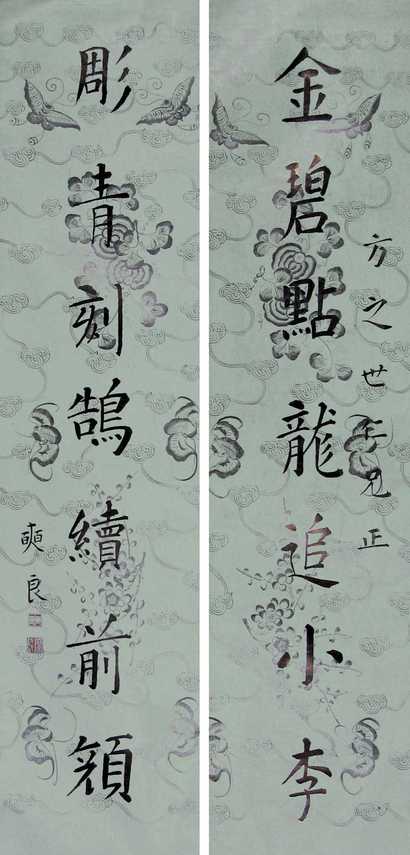 金碧點龍追小李
方之世仁兄正
彫青刻鵠續前顔
奭良